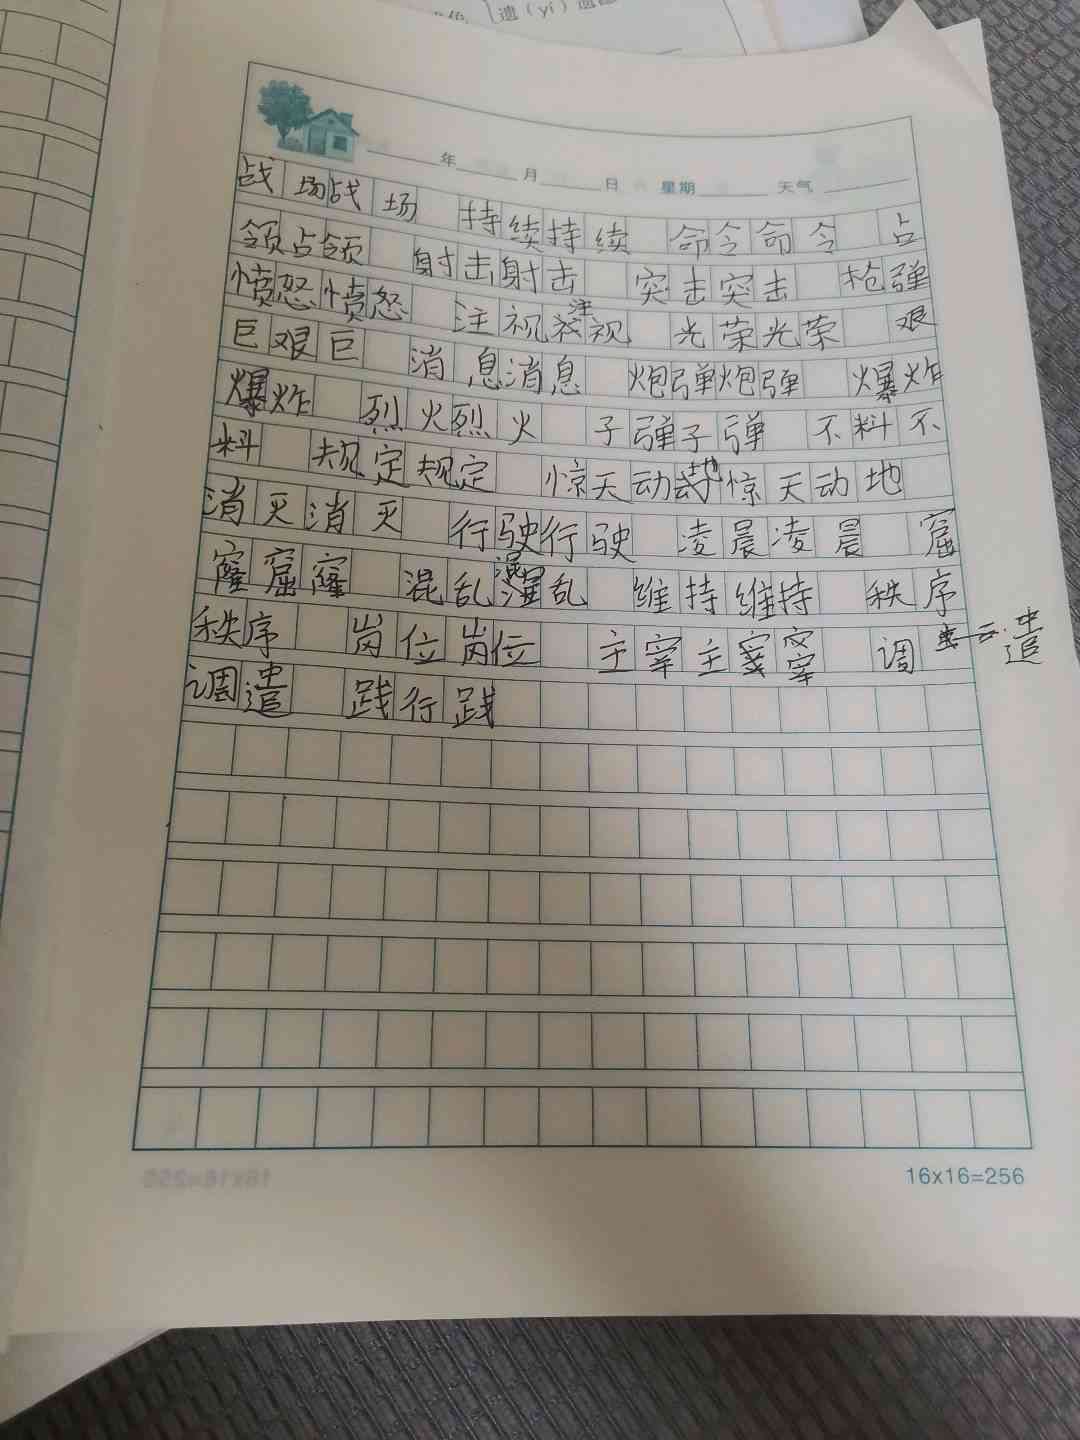 遗（yí）遗
年 月 日 星期 天气
战场战场 持续持续 命令命令 占
领占领 射击射击 突击突击 枪弹
愤怒愤怒 注视注视 光荣光荣 艰
巨艰巨 消息消息 炮弹炮弹 爆炸
爆炸 烈火烈火 子弹子弹 不料不
料 规定规定 惊天动地惊天动地
消灭消灭 行驶行驶 凌晨凌晨 窟
窿窟窿 混乱混乱 维持维持 秩序
秩序 岗位岗位 主宰主宰 调遣
调遣 践行践
16x16=256